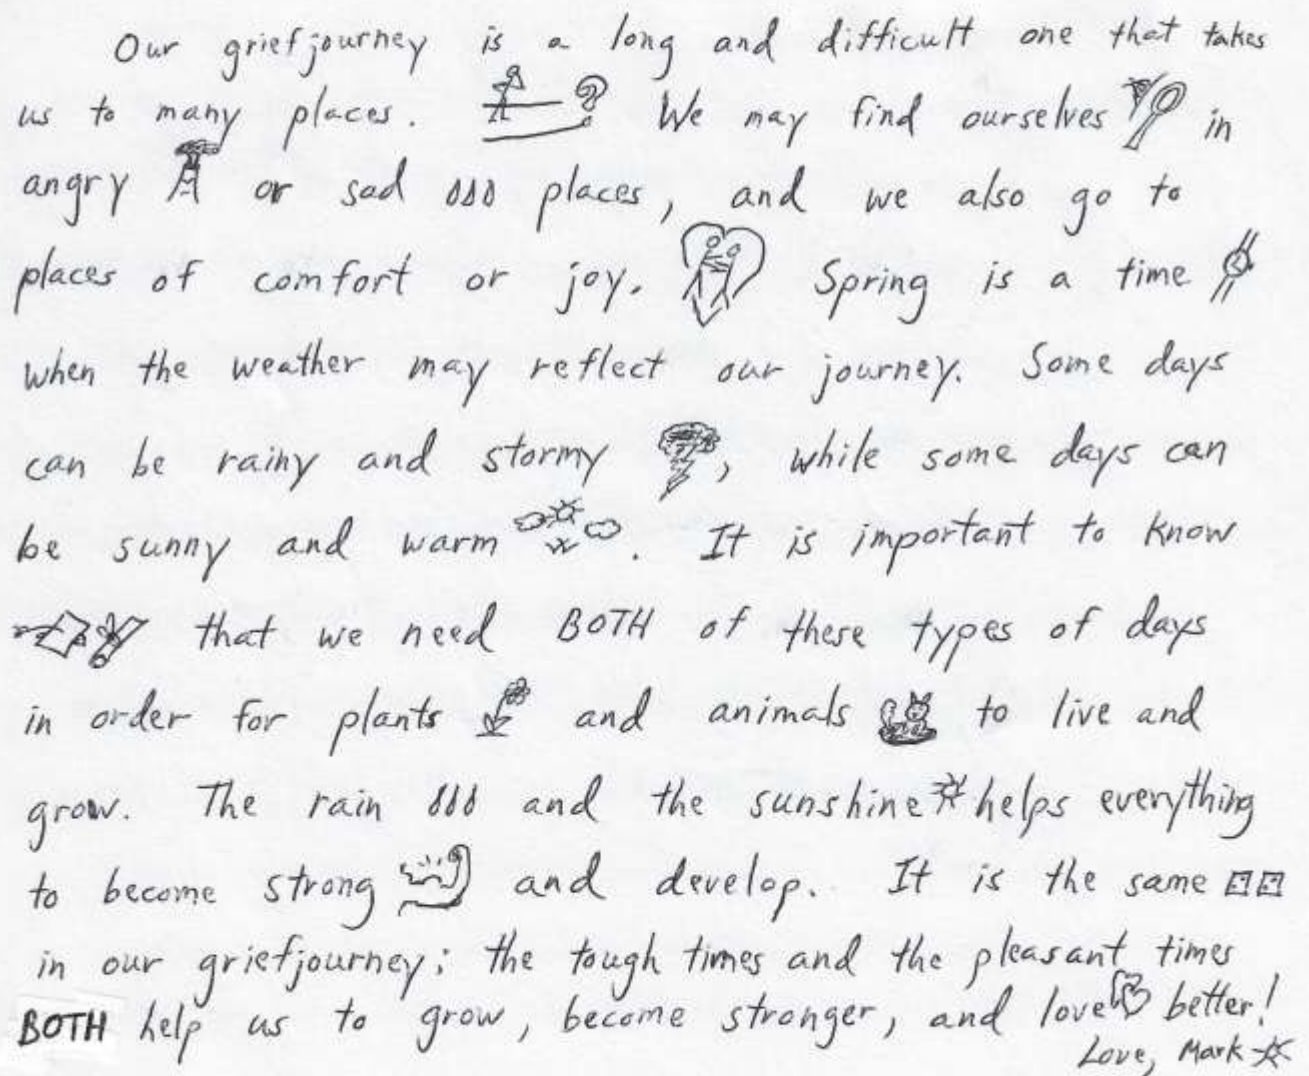 Our griefjourney is a long and difficult one that takes
us to many places. We may find ourselves in
angry or sad places, and we also go to
places of comfort or joy. Spring is a time
when the weather may reflect our journey. Some days
can be rainy and stormy, while some days can
be sunny and warm. It is important to know
that we need BOTH of these types of days
in order for plants and animals to live and
grow. The rain and the sunshine helps everything
to become strong and develop. It is the same
in our griefjourney; the tough times and the pleasant times
BOTH help us to grow, become stronger, and love better!
Love, Mark